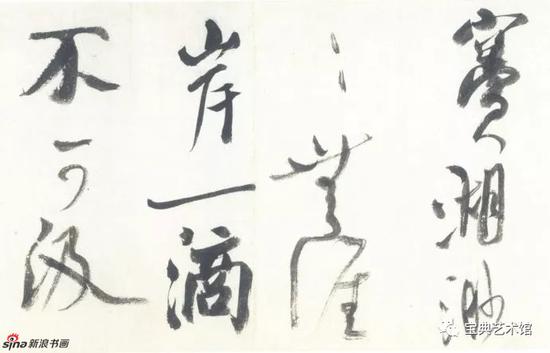 湘渺
々無涯
岸一滴
不可汲
sina新浪书画
宝典艺术馆